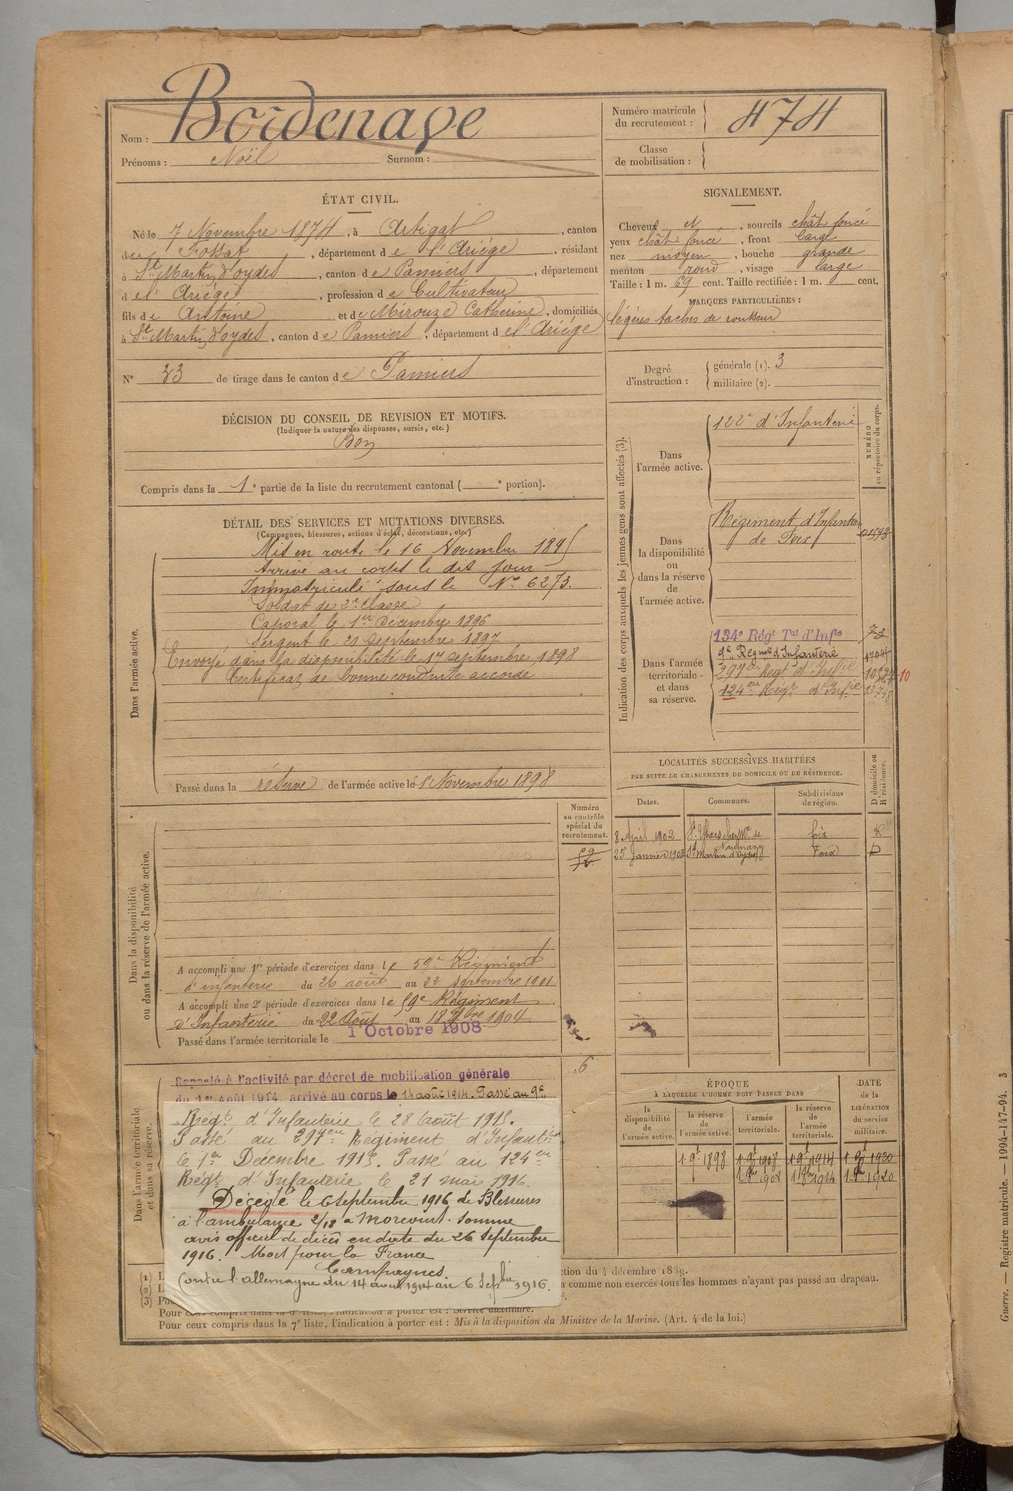 Nom : Bordenave
Prénoms : Noël Surnom :
Numéro matricule du recrutement : 474
Classe de mobilisation :
ÉTAT CIVIL.
Né le 7 Novembre 1874, à Artigat, canton
de Fossat, département de l'Ariège, résidant
à St Martin d'oydes, canton de Pamiers, département
de l'Ariège, profession de Cultivateur
fils de Antoine et de Mirouze Catherine, domiciliés
à St Martin d'oydes, canton de Pamiers, département de l'Ariège
N° 23 de tirage dans le canton de Pamiers
SIGNALEMENT.
Cheveux et, sourcils chât foncé
yeux chât foncé, front large
nez moyen, bouche grande
menton rond, visage large
Taille : 1 m. 69 cent. Taille rectifiée : 1 m. cent.
MARQUES PARTICULIÈRES :
légères taches de rousseur
Degré d'instruction : générale (1). 3
militaire (2).
DÉCISION DU CONSEIL DE REVISION ET MOTIFS.
(Indiquer la nature des dispenses, sursis, etc.)
Bon
Compris dans la 1e partie de la liste du recrutement cantonal ( e portion).
DÉTAIL DES SERVICES ET MUTATIONS DIVERSES.
(Campagnes, blessures, actions d'éclat, décorations, etc.)
Dans l'armée active.
Mis en route le 16 Novembre 1895
Arrivé au corps le dit jour
Immatriculé sous le N° 6273.
Soldat de 2e classe
Caporal le 1er Décembre 1896
Sergent le 21 Septembre 1897
Envoyé dans la disponibilité le 17 septembre 1898
Certificat de bonne conduite accordé
Passé dans la réserve de l'armée active le 1er Novembre 1898
Indication des corps auxquels les jeunes gens sont affectés (3).
NUMÉRO au répertoire du corps.
Dans l'armée active.
122e d'Infanterie
Dans la disponibilité ou dans la réserve de l'armée active.
Régiment d'Infanterie
de Foix
Dans l'armée territoriale et dans sa réserve.
134e Régt Tal d'Infie 73
9e Régimt d'Infanterie
297e Régt d'Infie
124e Régt d'Infie
LOCALITÉS SUCCESSIVES HABITÉES
PAR SUITE DE CHANGEMENTS DE DOMICILE OU DE RÉSIDENCE.
Dates. Communes. Subdivisions de région. D domicile ou R résidence.
8 Avril 1902 foix R
25 Janvier St Martin d'oydes Foix D
Numéro au contrôle spécial du recrutement.
Dans la disponibilité ou dans la réserve de l'armée active.
A accompli une 1re période d'exercices dans le 59e Régiment
d'infanterie du 26 août au 22 septembre 1901
A accompli une 2e période d'exercices dans le 59e Régiment
d'Infanterie du 22 Août au 18 7bre 1904
Passé dans l'armée territoriale le 1 Octobre 1908
Dans l'armée territoriale et dans sa réserve.
Rappelé à l'activité par décret de mobilisation générale
du 1er Août 1914, arrivé au corps le 14 août 1914. Passé au 9e
Régt d'Infanterie le 28 août 1915.
Passé au 297e Régiment d'Infantie
le 1er Décembre 1915. Passé au 124e
Régt d'Infanterie le 21 mai 1916.
Décédé le 6 septembre 1916 de Blessures
à l'ambulance 2/18 à Morcourt. Somme
avis officiel de décès en date du 26 Septembre
1916. Mort pour la France
Campagnes
Contre l'allemagne du 14 aout 1914 au 6 Sepbre 1916.
ÉPOQUE
À LAQUELLE L'HOMME DOIT PASSER DANS
la disponibilité de l'armée active. la réserve de l'armée active. l'armée territoriale. la réserve de l'armée territoriale.
DATE de la LIBÉRATION du service militaire.
1 9e 1898 1 9e 1908 1 9e 1914 1 9e 1920
ction du 4 décembre 1889.
a comme non exercés tous les hommes n'ayant pas passé au drapeau.
Pour ceux compris dans la 7e liste, l'indication à porter est : Mis à la disposition du Ministre de la Marine. (Art. 4 de la loi.)
Guerre. — Registre matricule. — 1994-147-94. 3